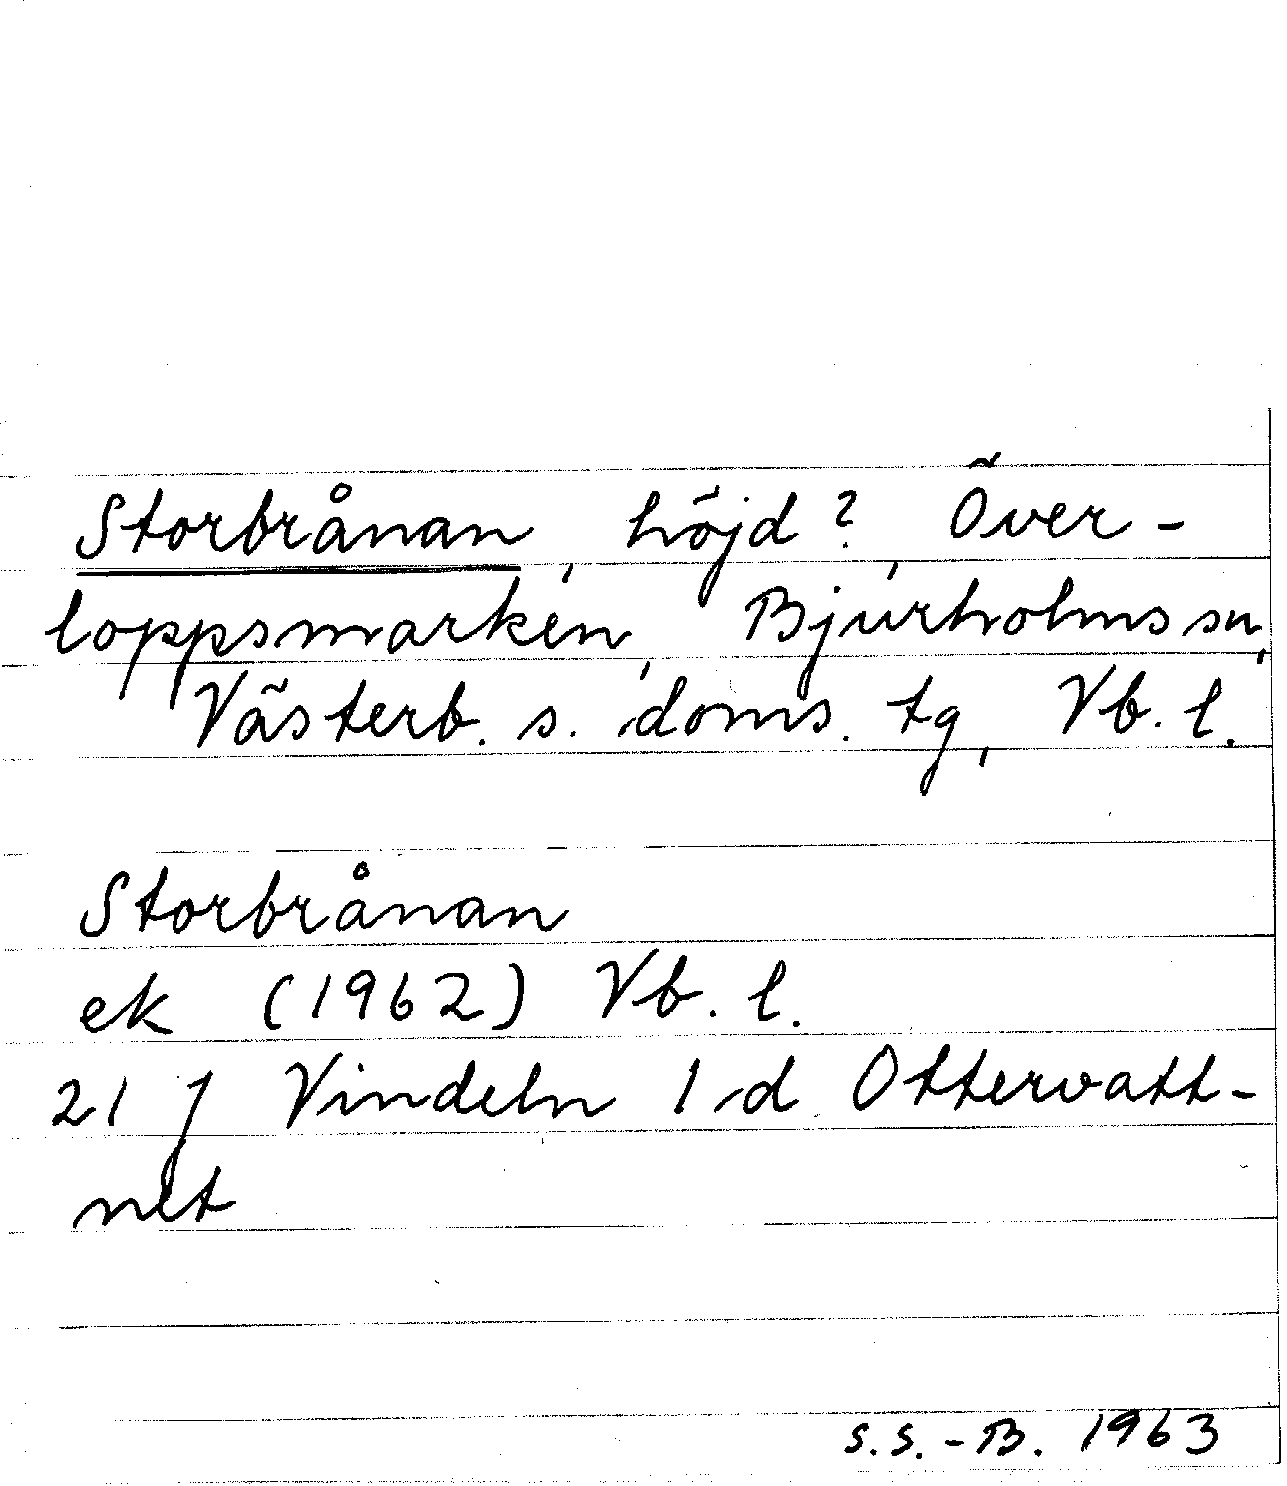 Storbrånan, höjd?, Över-
loppsmarken, Bjurholms sn,
Västerb. s. doms. tg, Vb. l.
Storbrånan
ek (1962) Vb. l.
21 J Vindeln 1 d Ottervatt-
net
S.S.-B. 1963